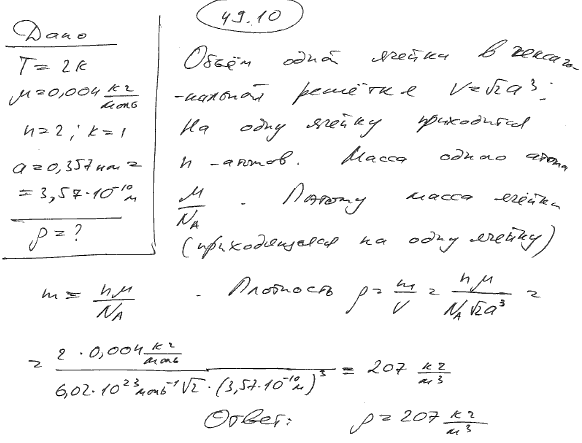 49.10
Дано
T = 2К
μ = 0,004 кг/моль
n = 2; k = 1
a = 0,357 нм =
= 3,57·10⁻¹⁰ м
ρ = ?
Объём одной ячейки в гексаго-
-нальной решётке V = √2a³;
На одну ячейку приходится
n - атомов. Масса одного атома
μ/N_A . Поэтому масса ячейки
(приходящаяся на одну ячейку)
m = nμ/N_A . Плотность ρ = m/V = nμ/(N_A √2a³) =
= (2 · 0,004 кг/моль)/(6,02·10²³ моль⁻¹ √2 · (3,57·10⁻¹⁰ м)³) = 207 кг/м³
Ответ: ρ = 207 кг/м³